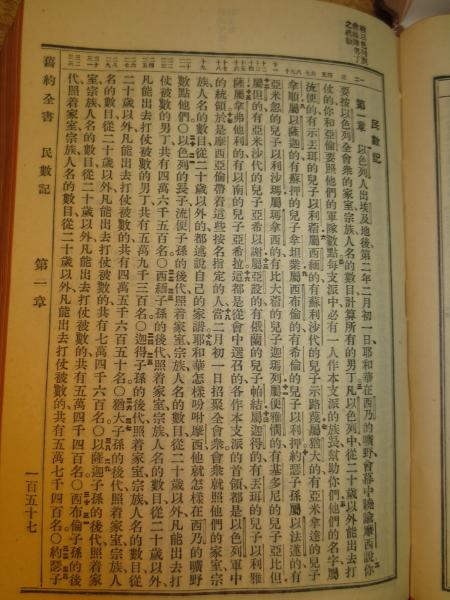 民數記
第一章 以色列人出埃及地後第二年二月初一日耶和華在西乃的曠野會幕中曉諭摩西說你
要按以色列全會衆的家室宗族人名的數目計算所有的男丁凡以色列中從二十歲以外能出去打
仗的你和亞倫要照他們的軍隊數點每支派中必有一人作本支派的族長幫助你們他們的名字屬
流便的有示丟珥的兒子以利蓿屬西緬的有蘇利沙代的兒子示路蔑屬猶大的有亞米拿達的兒子
拿順屬以薩迦的有蘇押的兒子拿坦業屬西布倫的有希倫的兒子以利押約瑟子孫屬以法蓮的有
亞米忽的兒子以利沙瑪屬瑪拿西的有比大蓿的兒子迦瑪列屬便雅憫的有基多尼的兒子亞比但
屬但的有亞米沙代的兒子亞希以謝屬亞設的有俄蘭的兒子帕結屬迦得的有丟珥的兒子以利雅
薩屬拿弗他利的有以南的兒子亞希拉這都是從會中選召的各作本支派的首領都是以色列軍中
的統領於是摩西亞倫帶着這些按名指定的人當二月初一日招聚全會衆會衆就照他們的家室宗
族人名的數目從二十歲以外的都述說自己的家譜耶和華怎樣吩咐摩西他就怎樣在西乃的曠野
數點他們〇以色列的長子流便子孫的後代照着家室宗族人名的數目從二十歲以外凡能出去打
仗被數的男丁共有四萬六千五百名〇西緬子孫的後代照着家室宗族人名的數目從二十歲以外
凡能出去打仗被數的男丁共有五萬九千三百名〇迦得子孫的後代照着家室宗族人名的數目從
二十歲以外凡能出去打仗被數的共有四萬五千六百五十名〇猶大子孫的後代照着家室宗族人名的數目從
二十歲以外凡能出去打仗被數的共有七萬四千六百名〇以薩迦子孫的後代照着
家室宗族人名的數目從二十歲以外凡能出去打仗被數的共有五萬四千四百名〇西布倫子孫的後
代照着家室宗族人名的數目從二十歲以外凡能出去打仗被數的共有五萬七千四百名〇約瑟子
舊約全書 民數記 第一章 一百五十七